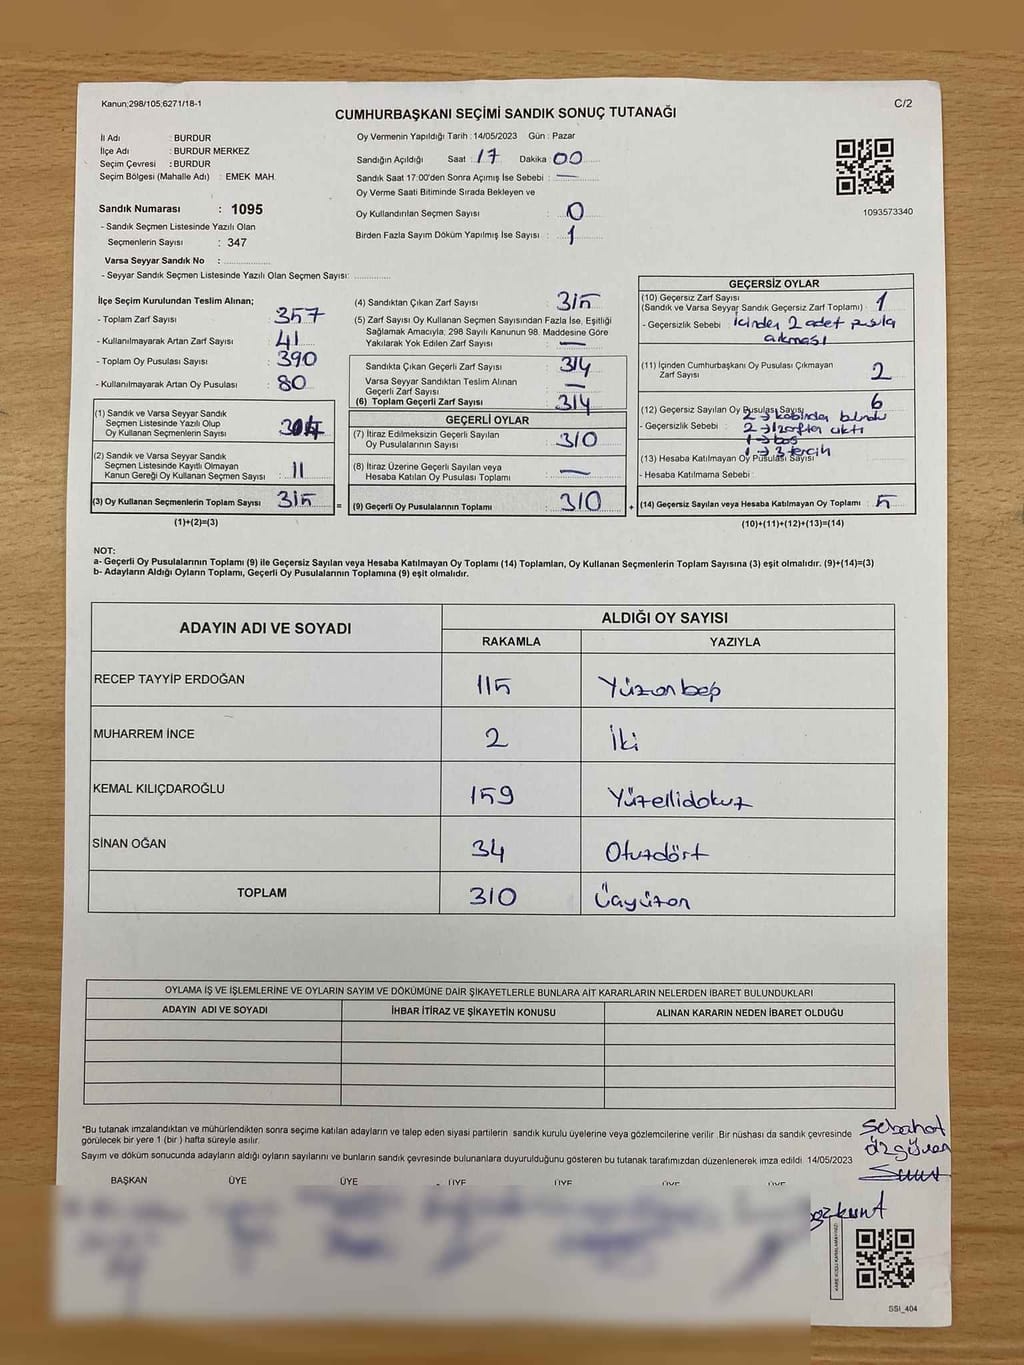 Kanun;298/105;6271/18-1
C/2
CUMHURBAŞKANI SEÇİMİ SANDIK SONUÇ TUTANAĞI
İl Adı : BURDUR
İlçe Adı : BURDUR MERKEZ
Seçim Çevresi : BURDUR
Seçim Bölgesi (Mahalle Adı) : EMEK MAH.
Sandık Numarası : 1095
- Sandık Seçmen Listesinde Yazılı Olan
Seçmenlerin Sayısı : 347
Varsa Seyyar Sandık No :
- Seyyar Sandık Seçmen Listesinde Yazılı Olan Seçmen Sayısı:
Oy Vermenin Yapıldığı Tarih : 14/05/2023 Gün : Pazar
Sandığın Açıldığı Saat : 17 Dakika : 00
Sandık Saat 17:00'den Sonra Açımış İse Sebebi : —
Oy Verme Saati Bitiminde Sırada Bekleyen ve
Oy Kullandırılan Seçmen Sayısı : 0
Birden Fazla Sayım Döküm Yapılmış İse Sayısı : 1
1093573340
İlçe Seçim Kurulundan Teslim Alınan;
- Toplam Zarf Sayısı : 357
- Kullanılmayarak Artan Zarf Sayısı : 41
- Toplam Oy Pusulası Sayısı : 390
- Kullanılmayarak Artan Oy Pusulası : 80
(1) Sandık ve Varsa Seyyar Sandık
Seçmen Listesinde Yazılı Olup
Oy Kullanan Seçmenlerin Sayısı : 304
(2) Sandık ve Varsa Seyyar Sandık
Seçmen Listesinde Kayıtlı Olmayan
Kanun Gereği Oy Kullanan Seçmen Sayısı : 11
(3) Oy Kullanan Seçmenlerin Toplam Sayısı : 315
(1)+(2)=(3)
(4) Sandıktan Çıkan Zarf Sayısı : 315
(5) Zarf Sayısı Oy Kullanan Seçmen Sayısından Fazla İse, Eşitliği
Sağlamak Amacıyla; 298 Sayılı Kanunun 98. Maddesine Göre
Yakılarak Yok Edilen Zarf Sayısı : —
Sandıkta Çıkan Geçerli Zarf Sayısı : 314
Varsa Seyyar Sandıktan Teslim Alınan
Geçerli Zarf Sayısı : —
(6) Toplam Geçerli Zarf Sayısı : 314
GEÇERLİ OYLAR
(7) İtiraz Edilmeksizin Geçerli Sayılan
Oy Pusulalarının Sayısı : 310
(8) İtiraz Üzerine Geçerli Sayılan veya
Hesaba Katılan Oy Pusulası Toplamı : —
= (9) Geçerli Oy Pusulalarının Toplamı : 310
GEÇERSİZ OYLAR
(10) Geçersiz Zarf Sayısı
(Sandık ve Varsa Seyyar Sandık Geçersiz Zarf Toplamı) : 1
- Geçersizlik Sebebi : İçinden 2 adet pusula
çıkması
(11) İçinden Cumhurbaşkanı Oy Pusulası Çıkmayan
Zarf Sayısı : 2
(12) Geçersiz Sayılan Oy Pusulası Sayısı : 6
- Geçersizlik Sebebi : 2 → kabinden bulundu
2 → zarftan çıktı
1 → boş
1 → 3 tercih
(13) Hesaba Katılmayan Oy Pusulası Sayısı :
- Hesaba Katılmama Sebebi :
+ (14) Geçersiz Sayılan veya Hesaba Katılmayan Oy Toplamı : 5
(10)+(11)+(12)+(13)=(14)
NOT:
a- Geçerli Oy Pusulalarının Toplamı (9) ile Geçersiz Sayılan veya Hesaba Katılmayan Oy Toplamı (14) Toplamları, Oy Kullanan Seçmenlerin Toplam Sayısına (3) eşit olmalıdır. (9)+(14)=(3)
b- Adayların Aldığı Oyların Toplamı, Geçerli Oy Pusulalarının Toplamına (9) eşit olmalıdır.
ADAYIN ADI VE SOYADI
ALDIĞI OY SAYISI
RAKAMLA YAZIYLA
RECEP TAYYİP ERDOĞAN 115 Yüzonbeş
MUHARREM İNCE 2 İki
KEMAL KILIÇDAROĞLU 159 Yüzellidokuz
SİNAN OĞAN 34 Otuzdört
TOPLAM 310 Üçyüzon
OYLAMA İŞ VE İŞLEMLERİNE VE OYLARIN SAYIM VE DÖKÜMÜNE DAİR ŞİKAYETLERLE BUNLARA AİT KARARLARIN NELERDEN İBARET BULUNDUKLARI
ADAYIN ADI VE SOYADI İHBAR İTİRAZ VE ŞİKAYETİN KONUSU ALINAN KARARIN NEDEN İBARET OLDUĞU
*Bu tutanak imzalandıktan ve mühürlendikten sonra seçime katılan adayların ve talep eden siyasi partilerin sandık kurulu üyelerine veya gözlemcilerine verilir. Bir nüshası da sandık çevresinde
görülecek bir yere 1 (bir ) hafta süreyle asılır.
Sayım ve döküm sonucunda adayların aldığı oyların sayılarını ve bunların sandık çevresinde bulunanlara duyurulduğunu gösteren bu tutanak tarafımızdan düzenlenerek imza edildi. 14/05/2023
Sebahat
Özgüven
BAŞKAN ÜYE ÜYE ÜYE ÜYE ÜYE ÜYE
SSİ_404